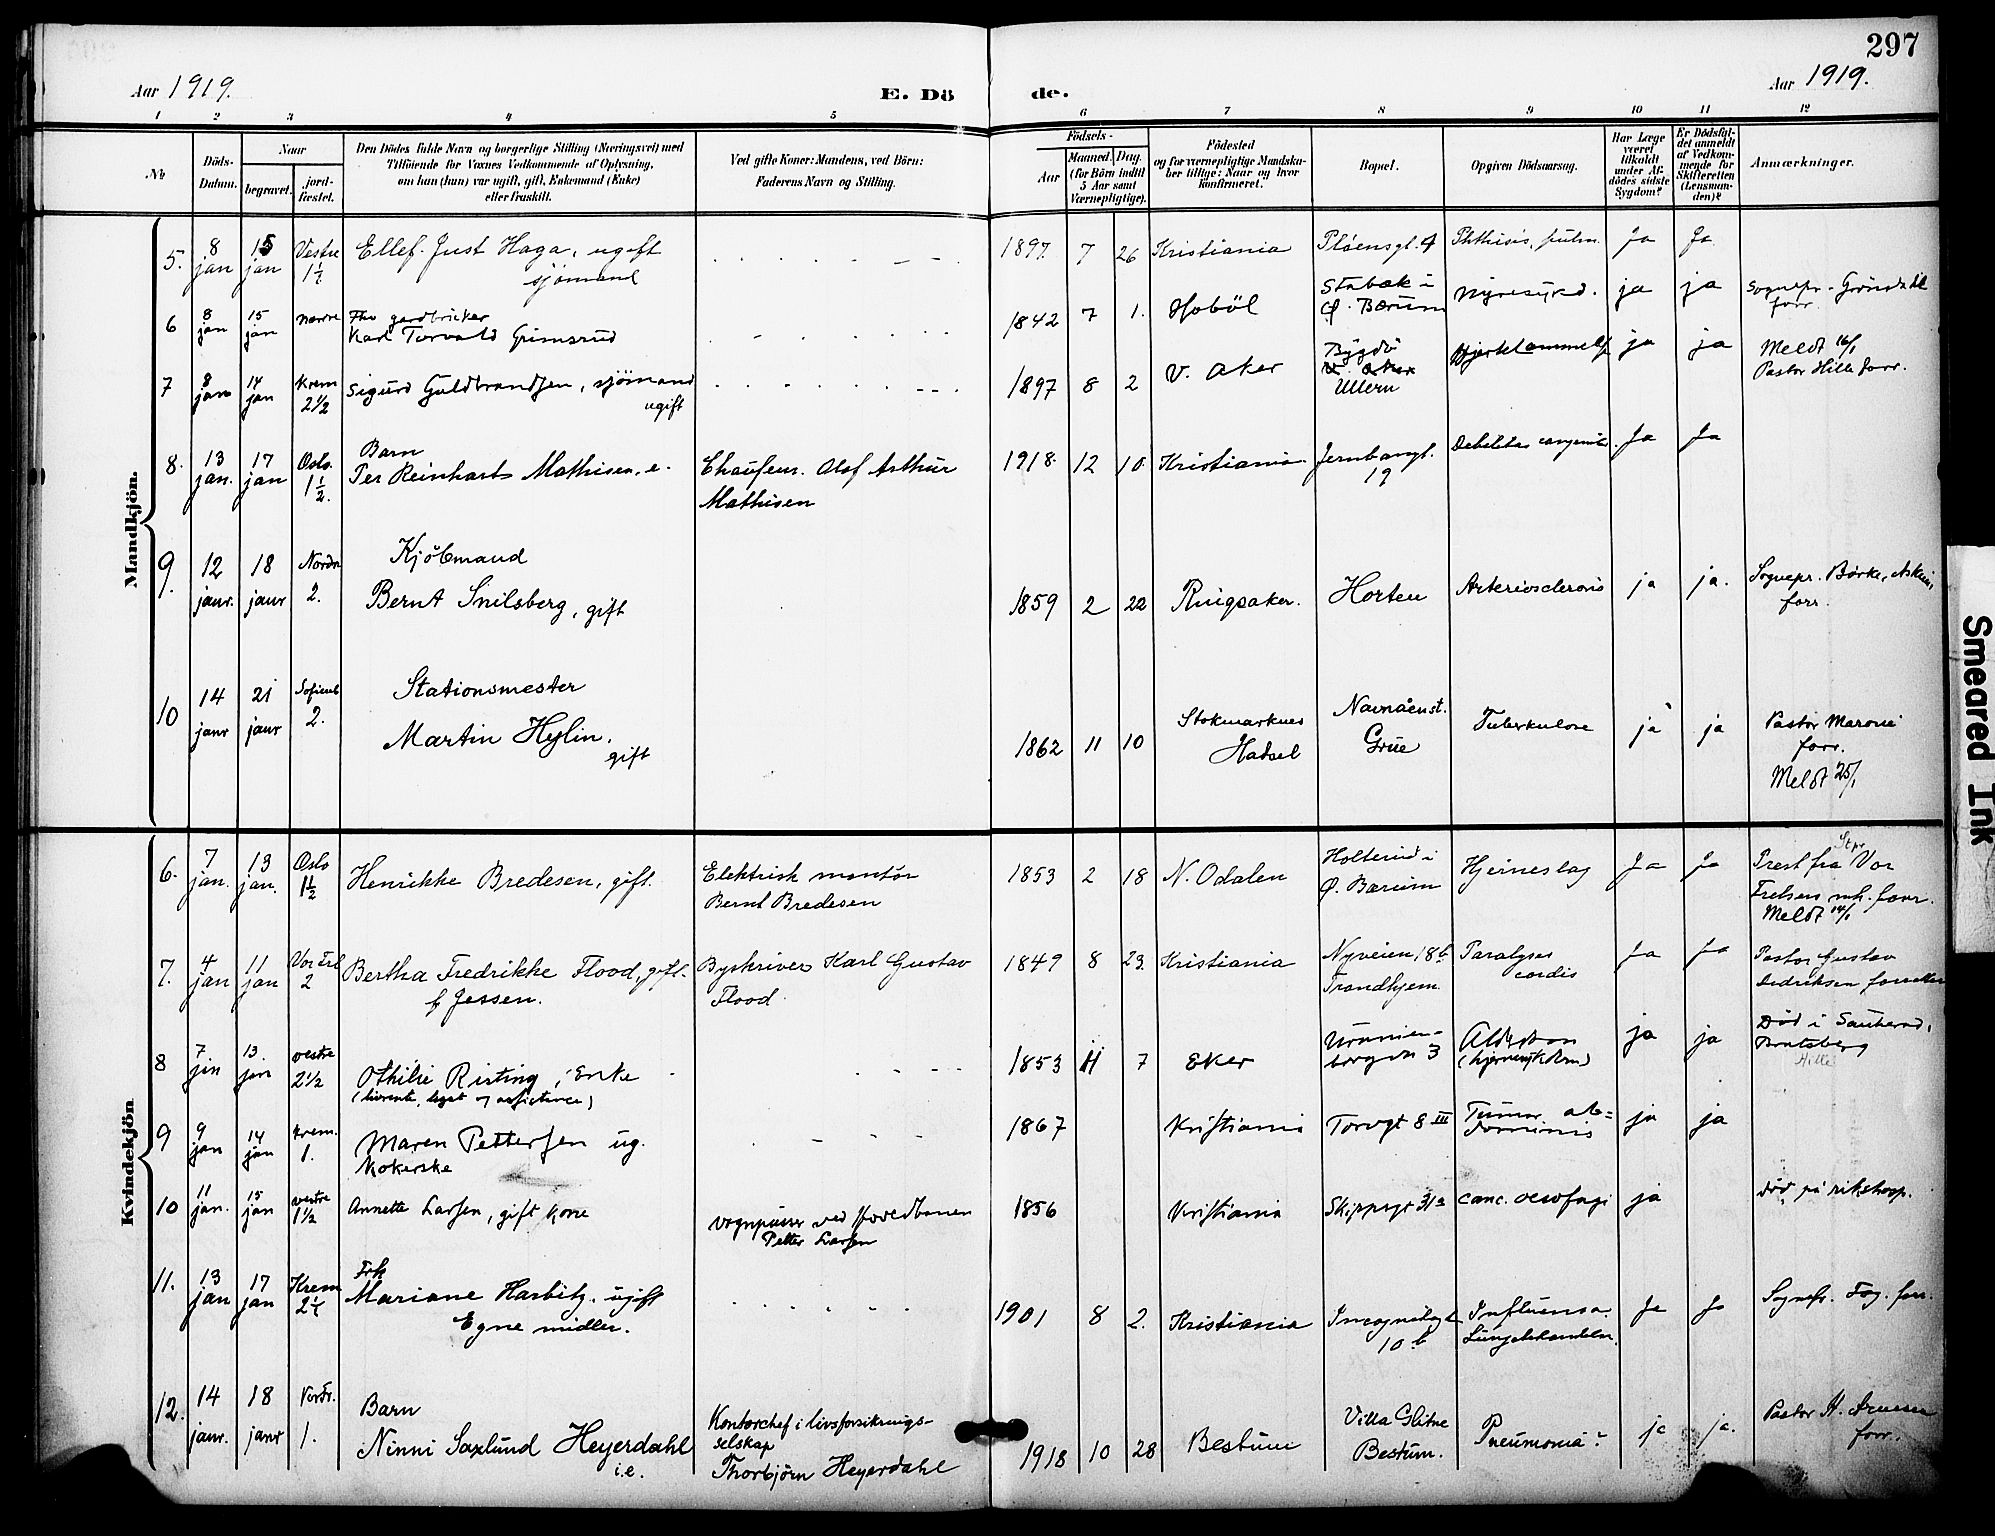 297
Aar 1919.
E. Dö
de.
Aar 1919.
1 2 3 4 5 6 7 8 9 10 11 12
No
Döds-
Datum.
Naar
begravet.
jord-
fæstet.
Den Dödes fulde Navn og borgerlige Stilling (Næringsvei) med
Tilföiende for Voxnes Vedkommende af Oplysning,
om han (hun) var ugift, gift, Enkemand (Enke)
eller fraskilt.
Ved gifte Koner: Mandens, ved Börn:
Faderens Navn og Stilling.
Födsels-
Aar
Maaned. Dag.
(for Börn indtil
5 Aar samt
Værnepligtige).
Födested
og for værnepligtige Mandska-
ber tillige: Naar og hvor
konfirmeret.
Bopæl.
Opgiven Dödsaarsag.
Har Læge
været
tilkaldt
under Af-
dödes sidste
Sygdom?
Er Dödsfal-
det anmeldt
af Vedkom-
mende for
Skifteretten
(Lensman-
den)?
Anmærkninger.
Mandkjön.
5. 8 jan 15 jan Vestre 1½ Ellef Just Haga, ugift
sjömand
1897. 7 26 Kristiania Pløensgt. 4 Phthisis pulm. Ja Ja
6 8 jan 15 jan nordre Fhv gardbruker
Karl Torvald Grimsrud
1842 7 1. Hobøl Stabæk i
Ø. Bærum nyresykd. ja ja Sognepr. Gröndahl
forr.
7 8 jan 14 jan Krem 2½ Sigurd Guldbrandsen, sjömand
ugift
1897 8 2 V. Aker Bygdö
V. Aker
Ullern Hjertelammelse ja ja Meldt 16/1
Pastor Hille forr.
8. 13 jan. 17 jan Oslo 1½. Barn
Per Reinhart Mathisen, e. Chaufeur. Olaf Arthur
Mathisen
1918. 12 10. Kristiania. Jernbangt.
19 Debilitas congenita. Ja Ja
9. 12 janr. 18 janr Nordre 2. Kjöbmand
Bernt Snilsberg, gift
1859 2 22 Ringsaker. Horten Arteriosclerosis ja ja. Sognepr. Börke, Askim,
forr.
10 14 janr 21 janr Sofienb 2. Stationsmester
Martin Hylin.
gift
1862 11 10 Stokmarknes
Hadsel Navnåen st.
Grue Tuberkulose ja ja Pastor
forr.
Meldt 25/1
Kvindekjön
6. 7 jan. 13 jan. Oslo 1½ Henrikke Bredesen, gift. Elektrisk montör
Bernt Bredesen
1853 2 18 N. Odalen Holterud i
Ø. Bærum Hjerneslag Ja Ja Prest fra Vor
Frelsers mh. forr.
Meldt 14/1
7. 4 jan 11 jan Vor Frl 2 Bertha Fredrikke Flood, gift.
f Jessen. Byskriver Karl Gustav
Flood.
1849 8 23. Kristiania Nyveien 18b
Trondhjem. Paralysis
cordis Ja Ja Pastor Gustav
Dedriksen forretter
8 7 jan 13. jan vestre 2½ Othilie Risting, Enke
(livrente, legat og assistance)
1853 11 7 Eker Uranien-
borgvn 3 Alderdom
(hjernesykdom) ja ja Död i Sauherad,
Bratsberg
Hille
9 9 jan 14 jan Krem. 1. Maren Pettersen ug.
Kokerske
1867 Kristiania Torvgt 8 III Tumor ab=
dominis ja ja
10 11 jan. 15 jan vestre 1½ Annette Larsen, gift kone vognpusser ved Hovedbanen
Petter Larsen
1856 Kristiania Skippergt 31a canc. oesofagi ja död på rikshosp.
11. 13 jan 17 jan Krem 2½ Frk
Mariane Harbitz, ugift
Egne midler.
1901 8 2. Kristiania Incognitogt
10 b Influensa.
Lungebetændelse. Ja Ja Sognepr. forr.
12. 14 janr. 18 janr Vor Fr. 1. Barn
Ninni Saxlund Heyerdahl
i.e. Kontorchef i livsforsikrings-
selskap
Thorbjörn Heyerdahl
1918 10 28 Bestum Villa Glitne
Bestum. Pneumonia? ja ja. Pastor H.
forr.
Smeared Ink